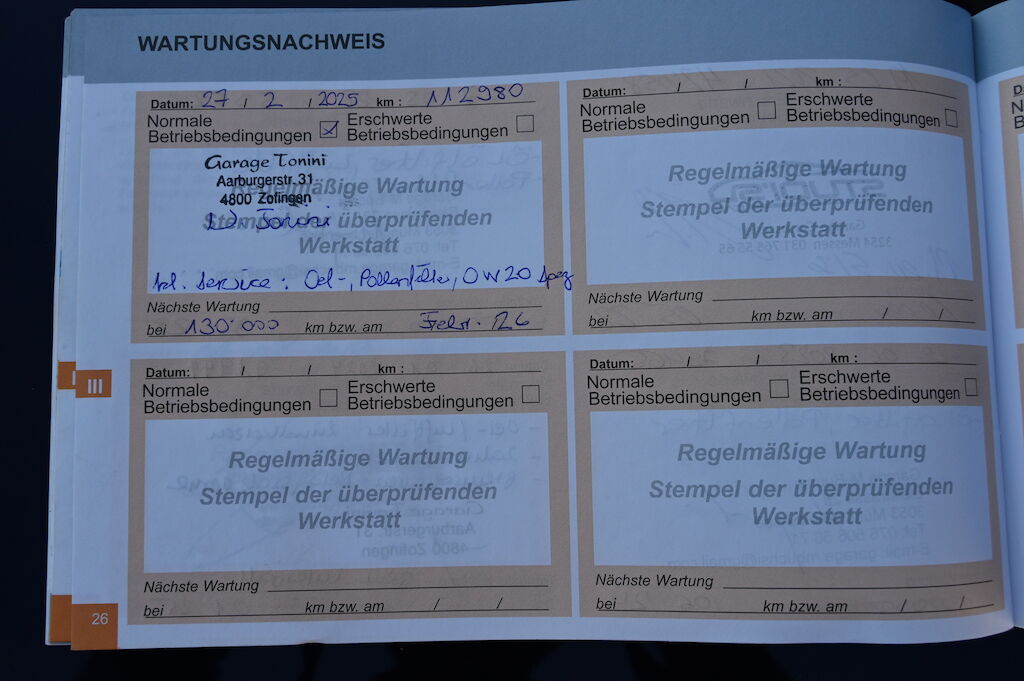 WARTUNGSNACHWEIS
Datum: 27 / 2 / 2025 km : 112980
Normale Betriebsbedingungen
Erschwerte Betriebsbedingungen
Garage Tonini
Aarburgerstr. 31
4800 Zofingen
Regelmäßige Wartung
Stempel der überprüfenden
Werkstatt
Service: Oel-, Pollenfilter, 0W20
Nächste Wartung
bei 130'000 km bzw. am Febr. 26
Datum: / / km :
Normale Betriebsbedingungen
Erschwerte Betriebsbedingungen
Regelmäßige Wartung
Stempel der überprüfenden
Werkstatt
Nächste Wartung
bei km bzw. am / /
III
Datum: / / km :
Normale Betriebsbedingungen
Erschwerte Betriebsbedingungen
Regelmäßige Wartung
Stempel der überprüfenden
Werkstatt
Nächste Wartung
bei km bzw. am / /
Datum: / / km :
Normale Betriebsbedingungen
Erschwerte Betriebsbedingungen
Regelmäßige Wartung
Stempel der überprüfenden
Werkstatt
Nächste Wartung
bei km bzw. am / /
26